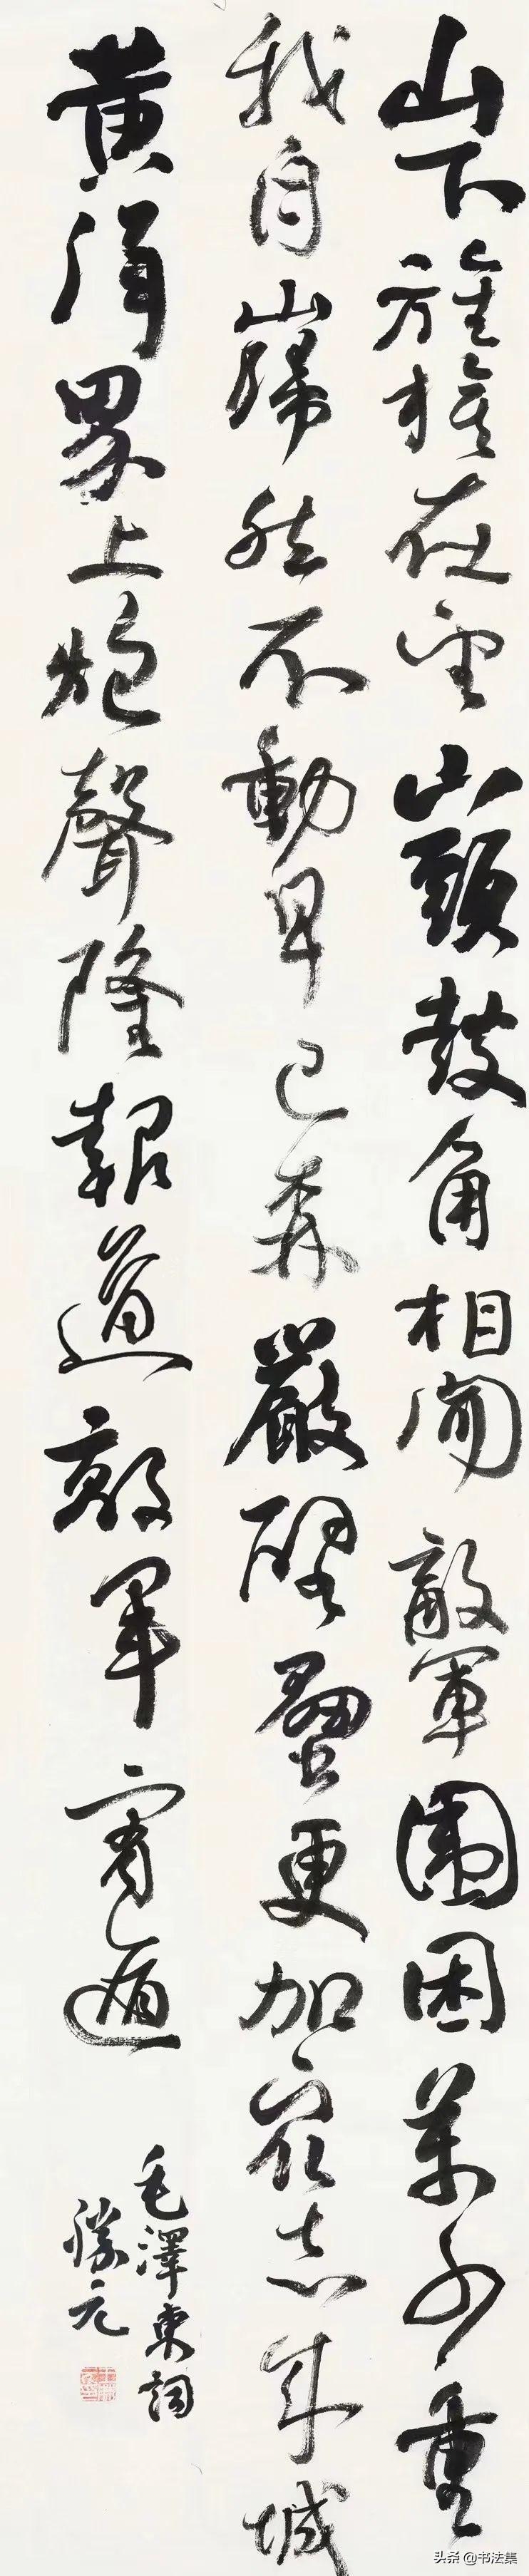 山下旌旗在望山頭鼓角相聞敵軍圍困萬千重
我自巋然不動早已森嚴壁壘更加眾志成城
黃洋界上炮聲隆報道敵軍宵遁
毛澤東詞
勝元
头条 @书法集